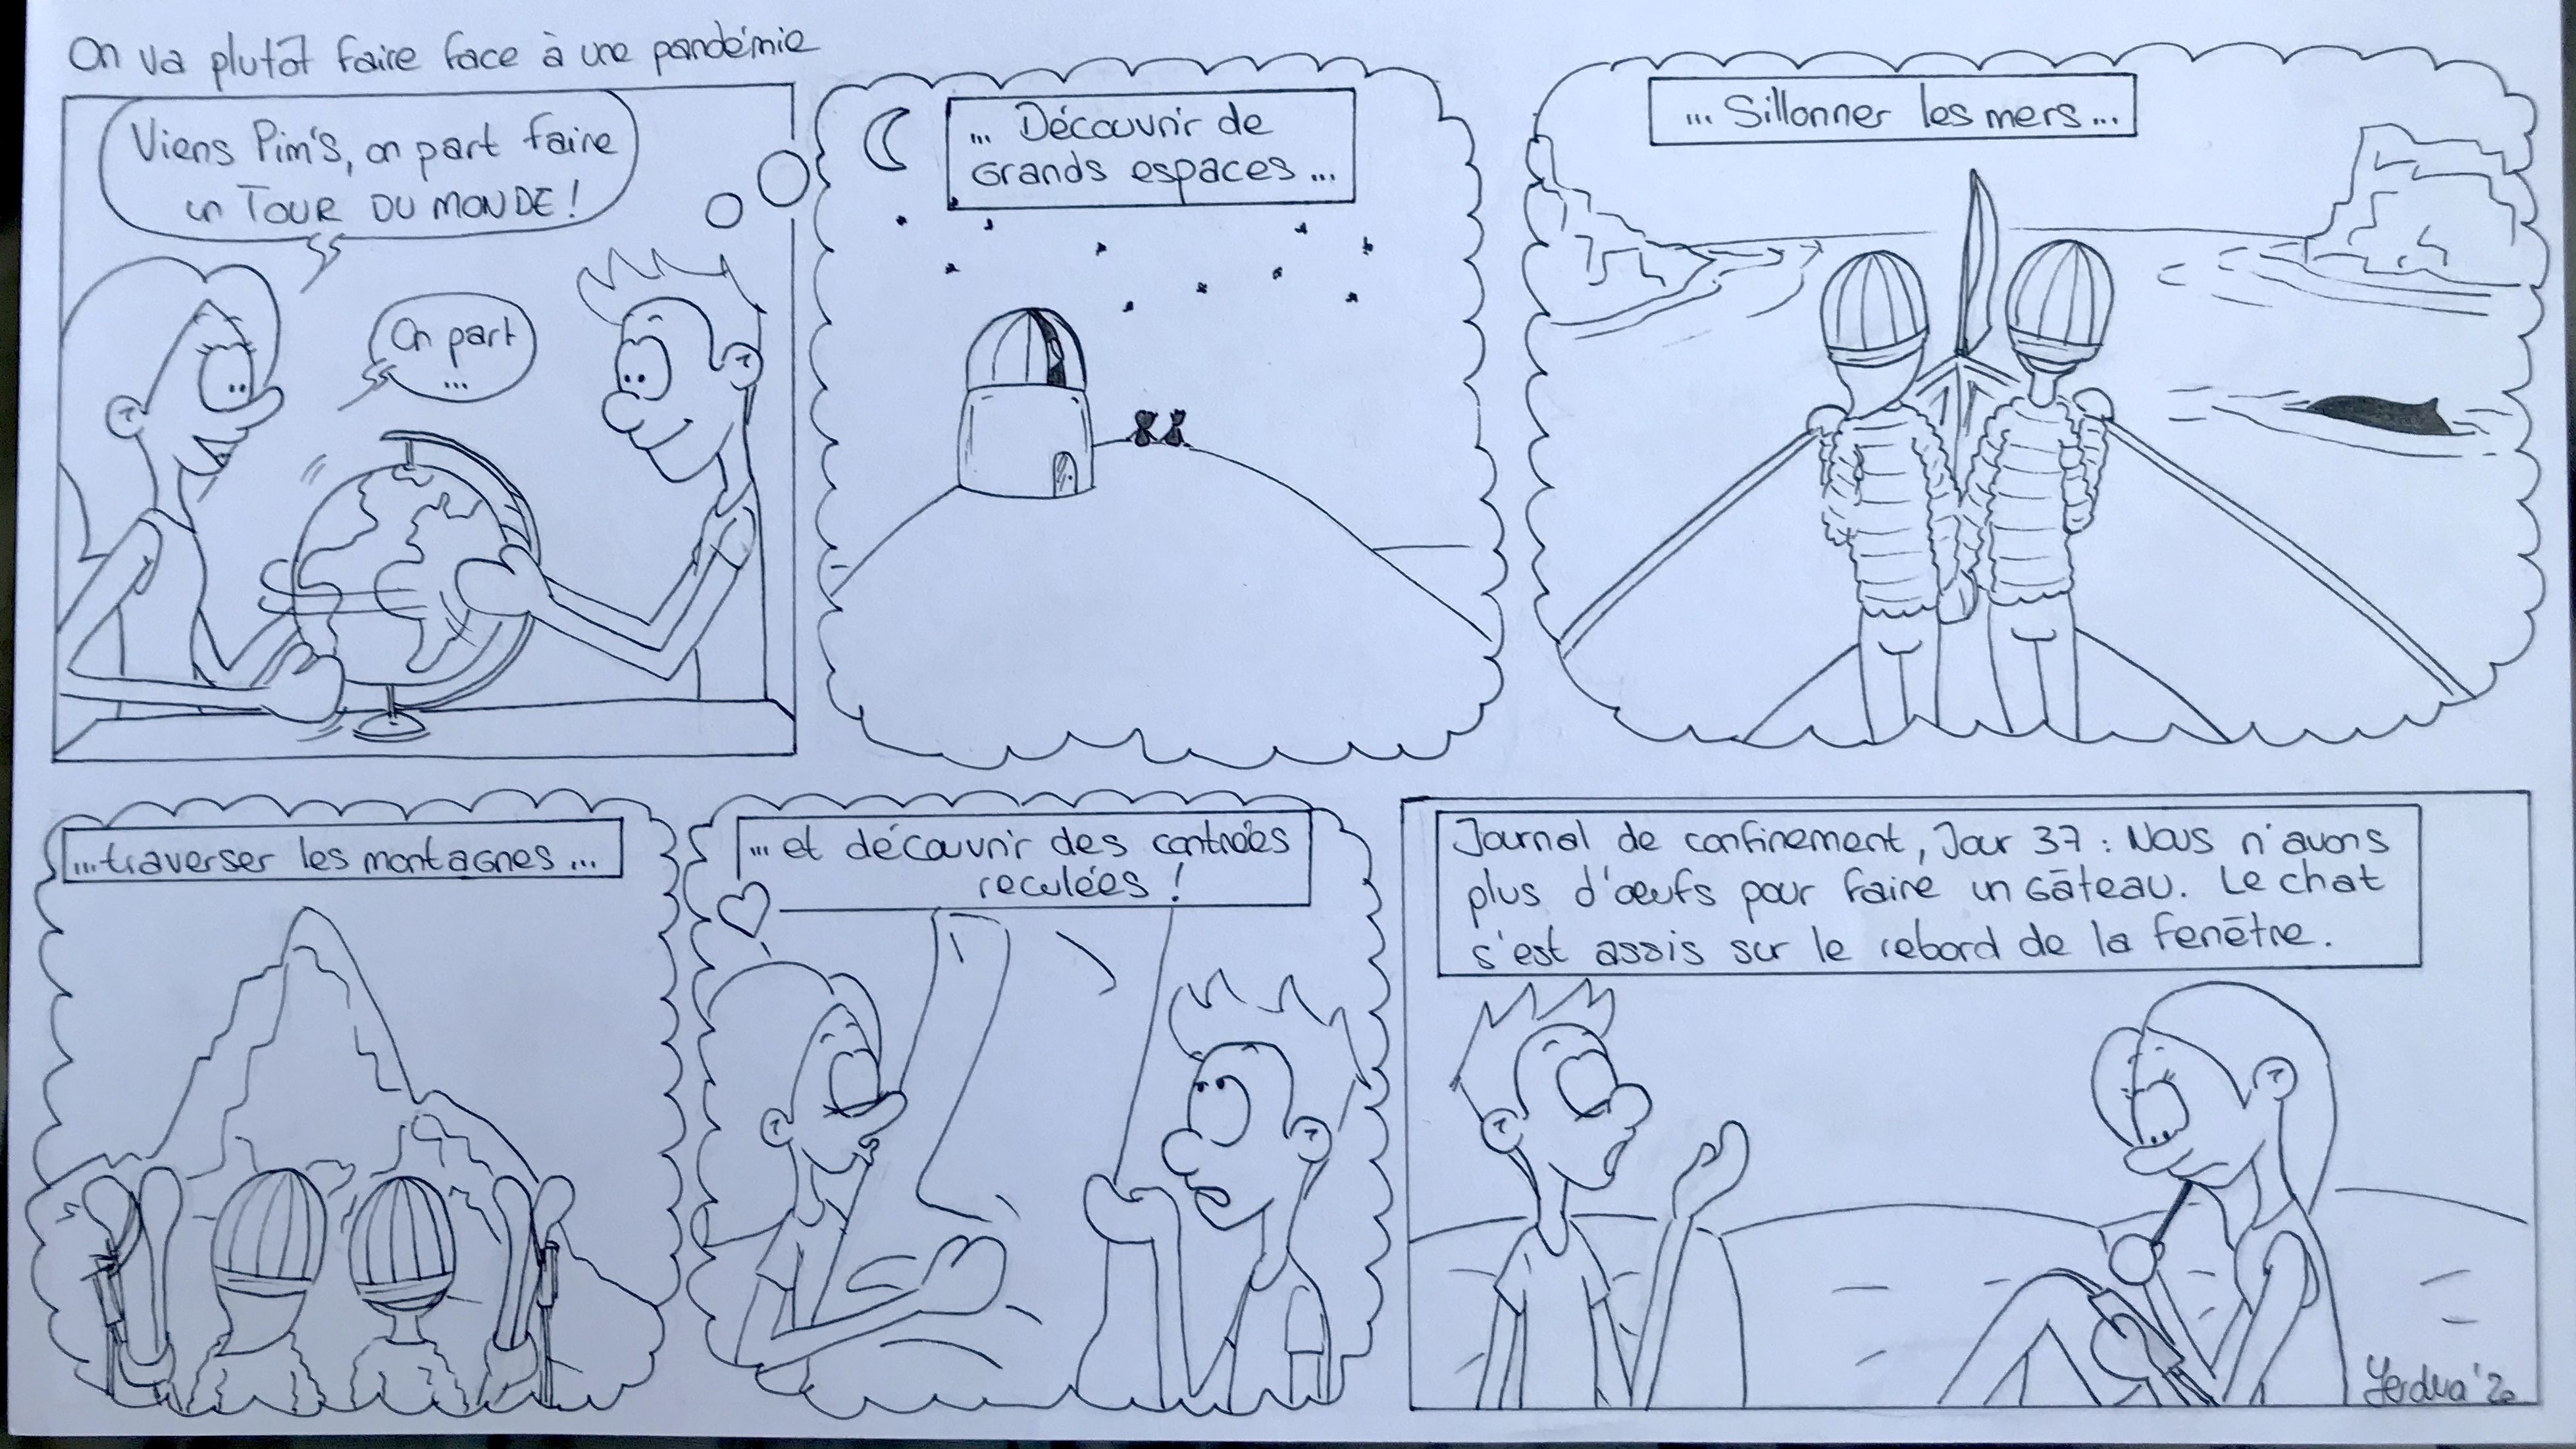 On va plutôt faire face à une pandémie
Viens Pim's, on part faire
un TOUR DU MONDE !
On part
...
... Découvrir de
Grands espaces ...
... Sillonner les mers ...
... traverser les montagnes ...
... et découvrir des contrées
reculées !
Journal de confinement, Jour 37 : Nous n'avons
plus d'œufs pour faire un Gâteau. Le chat
s'est assis sur le rebord de la fenêtre.